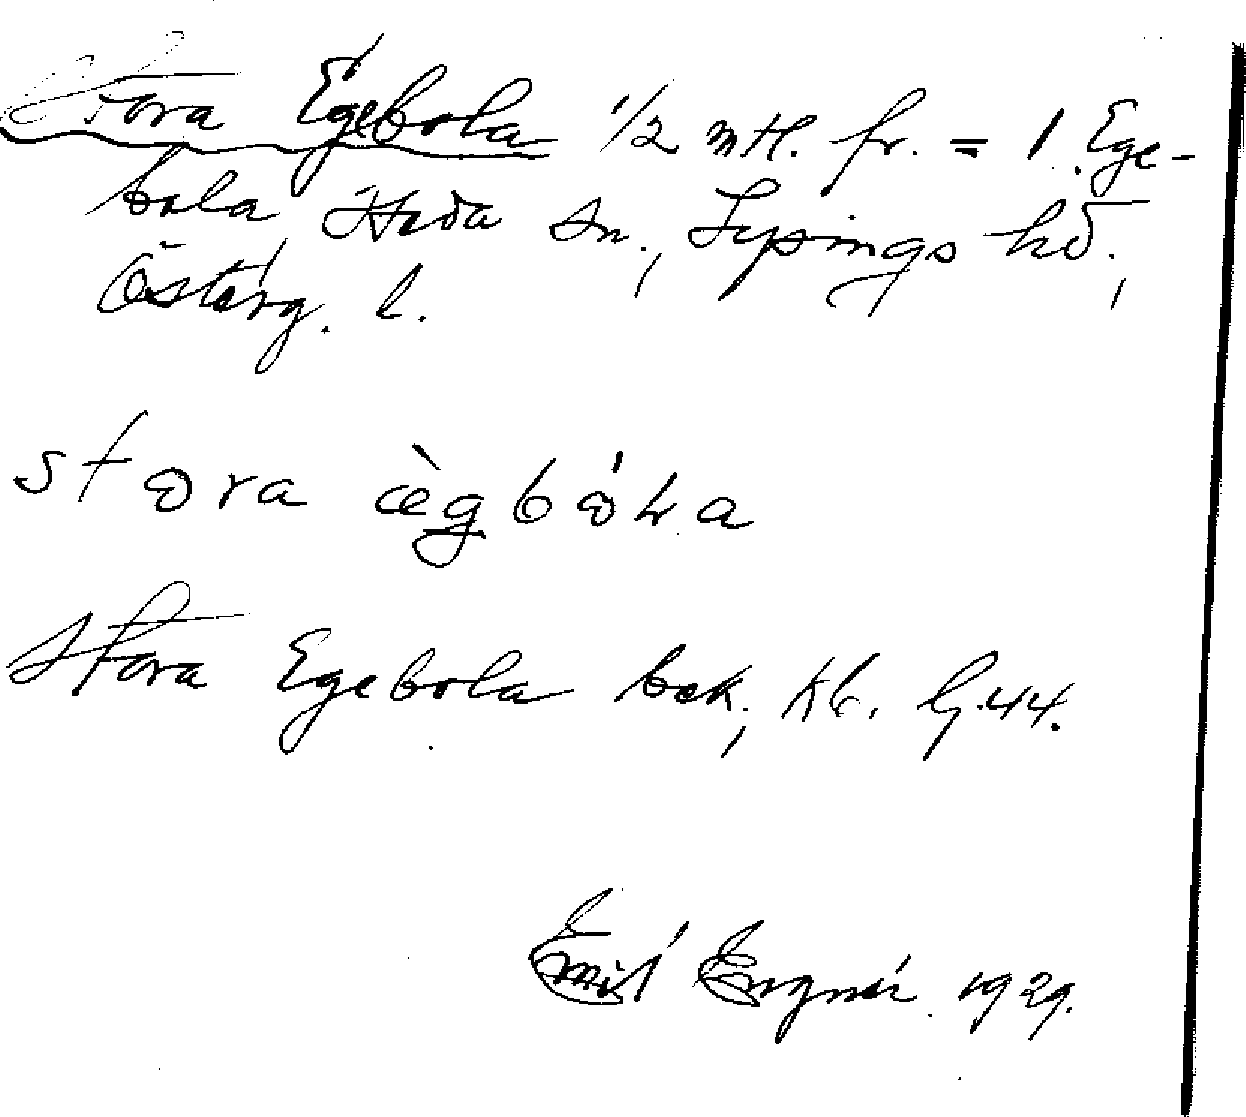 Stora Egebola 1/2 mtl. fr. = 1 Ege-
bola, Heda sn., Lysings hd.,
Österg. l.
stora ègbóla
Stora Egebola bek., Kb. G. 44.
Emil Engnér 1929.